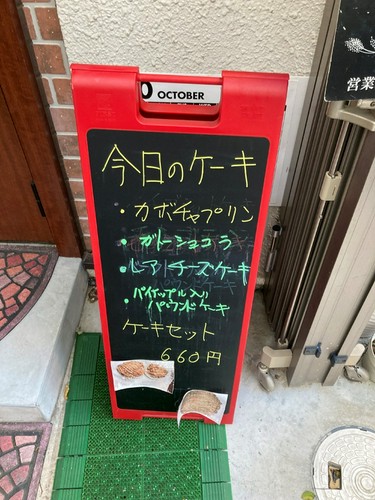 OCTOBER
今日のケーキ
・カボチャプリン
・ガトーショコラ
・レアチーズケーキ
・パイナップル入り
パウンドケーキ
ケーキセット
660円
営業